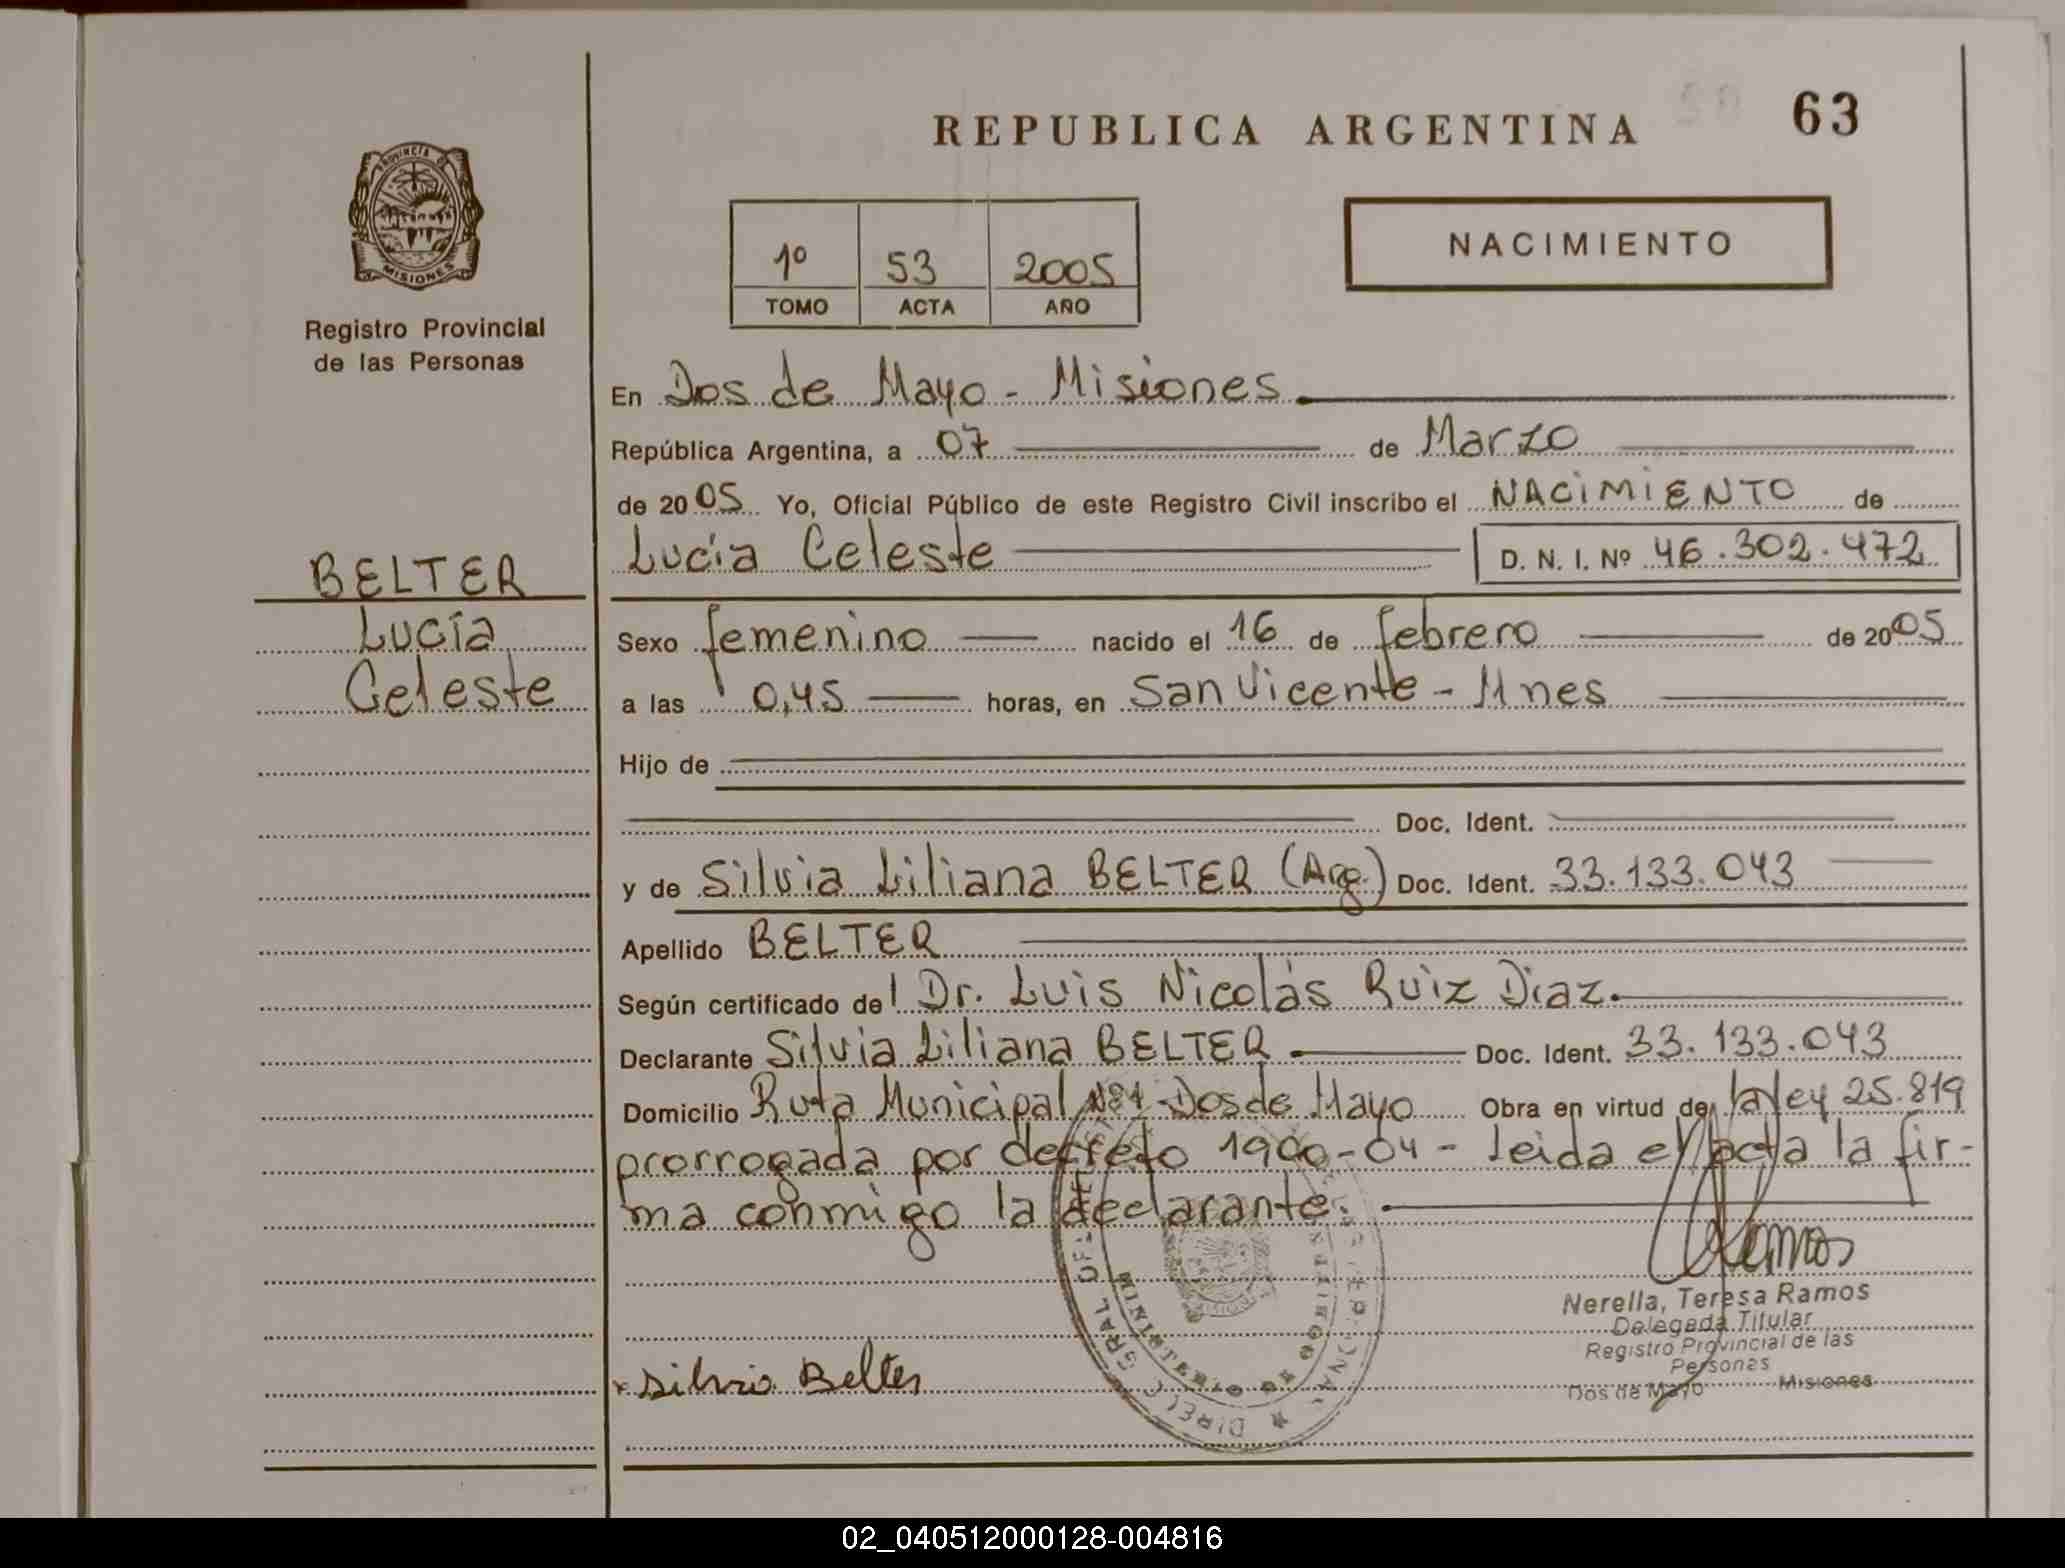 REPUBLICA ARGENTINA
63
PROVINCIA DE
MISIONES
Registro Provincial
de las Personas
1º 53 2005
TOMO ACTA AÑO
NACIMIENTO
En Dos de Mayo - Misiones
República Argentina, a 07 de Marzo
de 2005 Yo, Oficial Público de este Registro Civil inscribo el NACIMIENTO de
Lucía Celeste D. N. I. Nº 46.302.472
BELTER
Lucía
Celeste
Sexo femenino nacido el 16 de febrero de 2005
a las 0,45 horas, en San Vicente - Mnes
Hijo de
Doc. Ident.
y de Silvia Liliana BELTER (Arg.) Doc. Ident. 33.133.043
Apellido BELTER
Según certificado del Dr. Luis Nicolás Ruiz Diaz.
Declarante Silvia Liliana BELTER Doc. Ident. 33.133.043
Domicilio Ruta Municipal Nº1 Dos de Mayo Obra en virtud de la ley 25.819
prorrogada por decreto 1900-04 - leida el acta la fir-
ma conmigo la declarante.
Ramos
Nerella, Teresa Ramos
Delegada Titular
Registro Provincial de las
Personas
Dos de Mayo Misiones
x Silvia Belter
02_040512000128-004816